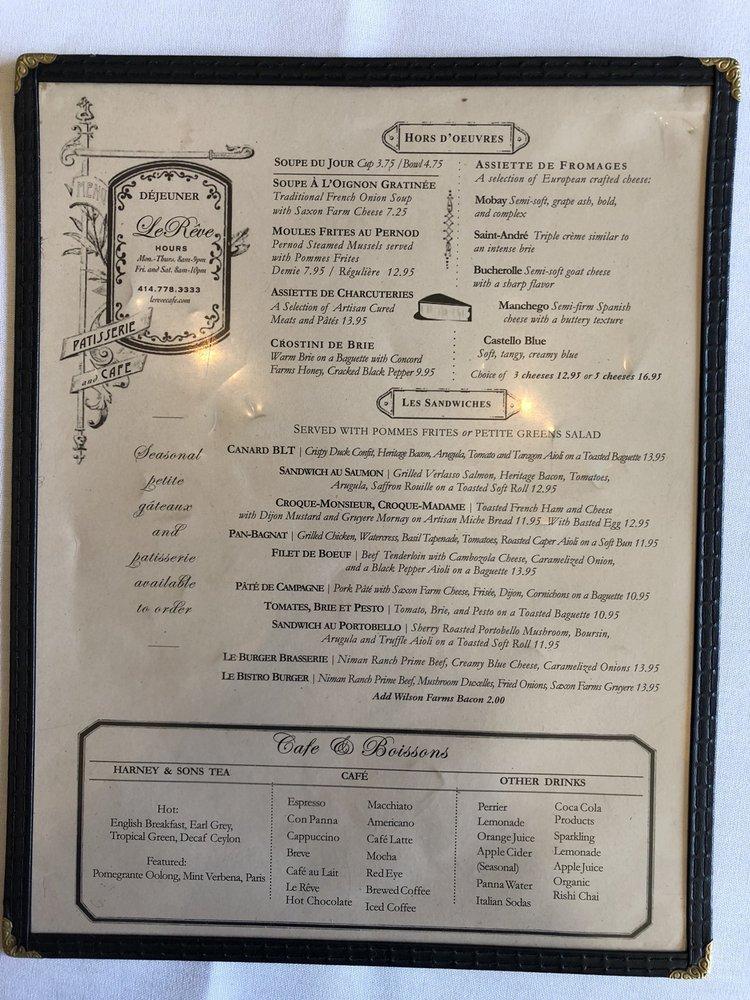 MENU
DÉJEUNER
Le Rêve
HOURS
Mon.-Thurs. 8am-9pm
Fri. and Sat. 8am-10pm
414.778.3333
lerevecafe.com
PATISSERIE
and CAFE
HORS D'OEUVRES
SOUPE DU JOUR Cup 3.75 / Bowl 4.75
SOUPE À L'OIGNON GRATINÉE
Traditional French Onion Soup
with Saxon Farm Cheese 7.25
MOULES FRITES AU PERNOD
Pernod Steamed Mussels served
with Pommes Frites
Demie 7.95 / Régulière 12.95
ASSIETTE DE CHARCUTERIES
A Selection of Artisan Cured
Meats and Pâtés 13.95
CROSTINI DE BRIE
Warm Brie on a Baguette with Concord
Farms Honey, Cracked Black Pepper 9.95
ASSIETTE DE FROMAGES
A selection of European crafted cheese:
Mobay Semi-soft, grape ash, bold,
and complex
Saint-André Triple crème similar to
an intense brie
Bucherolle Semi-soft goat cheese
with a sharp flavor
Manchego Semi-firm Spanish
cheese with a buttery texture
Castello Blue
Soft, tangy, creamy blue
Choice of 3 cheeses 12.95 or 5 cheeses 16.95
LES SANDWICHES
SERVED WITH POMMES FRITES or PETITE GREENS SALAD
Seasonal
petite
gâteaux
and
patisserie
available
to order
CANARD BLT | Crispy Duck Confit, Heritage Bacon, Arugula, Tomato and Taragon Aioli on a Toasted Baguette 13.95
SANDWICH AU SAUMON | Grilled Verlasso Salmon, Heritage Bacon, Tomatoes,
Arugula, Saffron Rouille on a Toasted Soft Roll 12.95
CROQUE-MONSIEUR, CROQUE-MADAME | Toasted French Ham and Cheese
with Dijon Mustard and Gruyere Mornay on Artisan Miche Bread 11.95 With Basted Egg 12.95
PAN-BAGNAT | Grilled Chicken, Watercress, Basil Tapenade, Tomatoes, Roasted Caper Aioli on a Soft Bun 11.95
FILET DE BOEUF | Beef Tenderloin with Cambozola Cheese, Caramelized Onion,
and a Black Pepper Aioli on a Baguette 13.95
PÂTÉ DE CAMPAGNE | Pork Pâté with Saxon Farm Cheese, Frisée, Dijon, Cornichons on a Baguette 10.95
TOMATES, BRIE ET PESTO | Tomato, Brie, and Pesto on a Toasted Baguette 10.95
SANDWICH AU PORTOBELLO | Sherry Roasted Portobello Mushroom, Boursin,
Arugula and Truffle Aioli on a Toasted Soft Roll 11.95
LE BURGER BRASSERIE | Niman Ranch Prime Beef, Creamy Blue Cheese, Caramelized Onions 13.95
LE BISTRO BURGER | Niman Ranch Prime Beef, Mushroom Duxelles, Fried Onions, Saxon Farms Gruyere 13.95
Add Wilson Farms Bacon 2.00
Cafe & Boissons
HARNEY & SONS TEA
Hot:
English Breakfast, Earl Grey,
Tropical Green, Decaf Ceylon
Featured:
Pomegrante Oolong, Mint Verbena, Paris
CAFÉ
Espresso
Con Panna
Cappuccino
Breve
Café au Lait
Le Rêve
Hot Chocolate
Macchiato
Americano
Café Latte
Mocha
Red Eye
Brewed Coffee
Iced Coffee
OTHER DRINKS
Perrier
Lemonade
Orange Juice
Apple Cider
(Seasonal)
Panna Water
Italian Sodas
Coca Cola
Products
Sparkling
Lemonade
Apple Juice
Organic
Rishi Chai